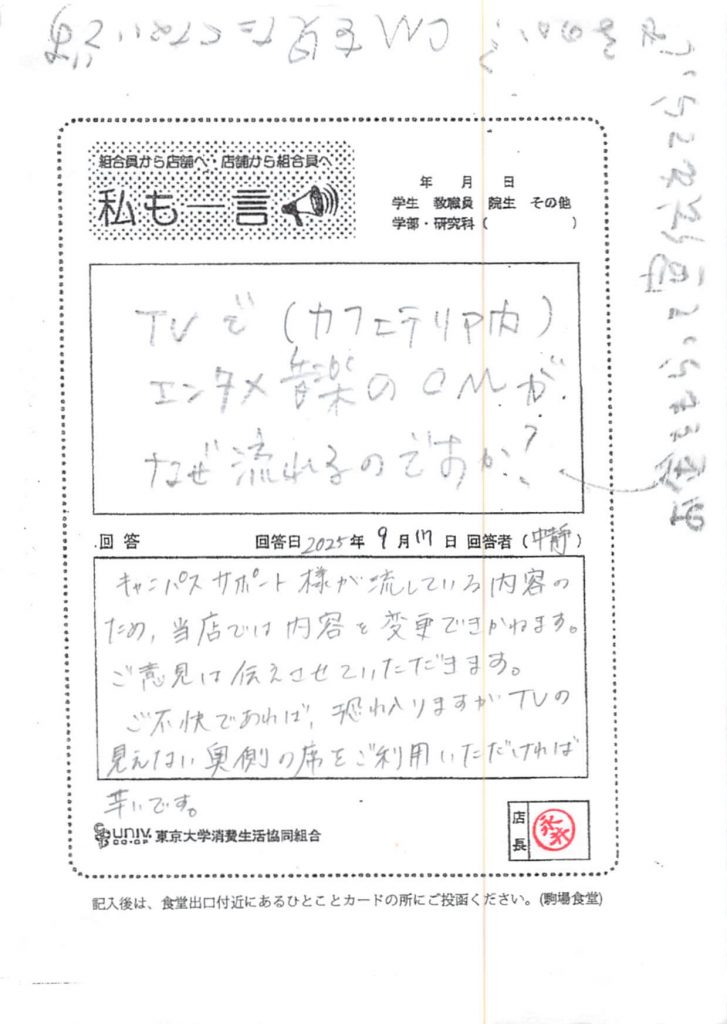 組合員から店舗へ・店舗から組合員へ
私も一言
年 月 日
学生 教職員 院生 その他
学部・研究科( )
TVで(カフェテリア内)
エンタメ音楽のCMが
なぜ流れるのですか?
回答 回答日2025年9月17日 回答者(中静)
キャンパスサポート様が流している内容の
ため、当店では内容を変更できかねます。
ご意見は伝えさせていただきます。
ご不快であれば、恐れ入りますがTVの
見えない奥側の席をご利用いただければ
幸いです。
UNIV. CO-OP 東京大学消費生活協同組合
店長
記入後は、食堂出口付近にあるひとことカードの所にご投函ください。(駒場食堂)